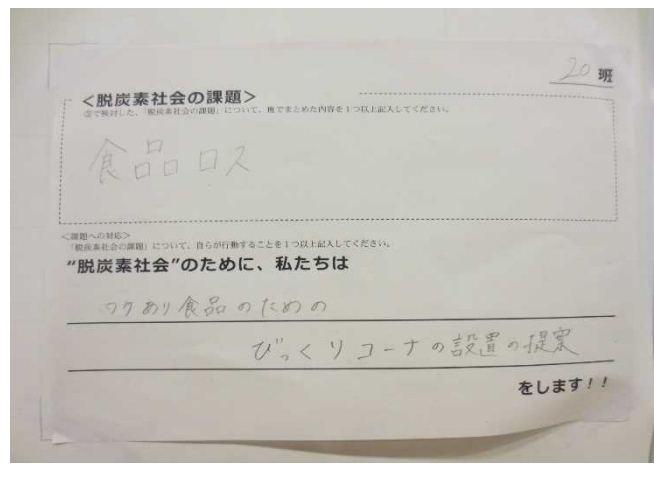 20 班
<脱炭素社会の課題>
③で検討した、「脱炭素社会の課題」について、班でまとめた内容を1つ以上記入してください。
食品ロス
<課題への対応>
「脱炭素社会の課題」について、自らが行動することを1つ以上記入してください。
"脱炭素社会"のために、私たちは
ワケあり食品のための
びっくりコーナの設置の提案
をします!!